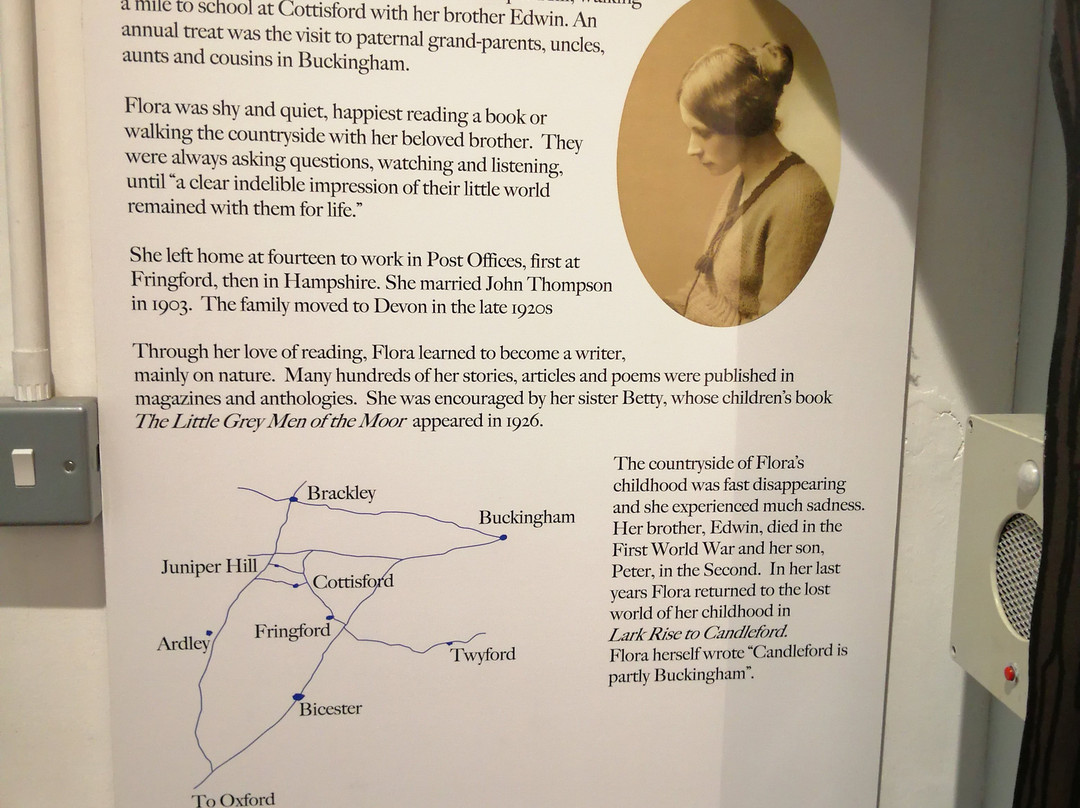 a mile to school at Cottisford with her brother Edwin. An
annual treat was the visit to paternal grand-parents, uncles,
aunts and cousins in Buckingham.
Flora was shy and quiet, happiest reading a book or
walking the countryside with her beloved brother. They
were always asking questions, watching and listening,
until “a clear indelible impression of their little world
remained with them for life.”
She left home at fourteen to work in Post Offices, first at
Fringford, then in Hampshire. She married John Thompson
in 1903. The family moved to Devon in the late 1920s
Through her love of reading, Flora learned to become a writer,
mainly on nature. Many hundreds of her stories, articles and poems were published in
magazines and anthologies. She was encouraged by her sister Betty, whose children's book
The Little Grey Men of the Moor appeared in 1926.
The countryside of Flora's
childhood was fast disappearing
and she experienced much sadness.
Her brother, Edwin, died in the
First World War and her son,
Peter, in the Second. In her last
years Flora returned to the lost
world of her childhood in
Lark Rise to Candleford.
Flora herself wrote “Candleford is
partly Buckingham”.
Brackley
Buckingham
Juniper Hill
Cottisford
Fringford
Ardley
Twyford
Bicester
To Oxford